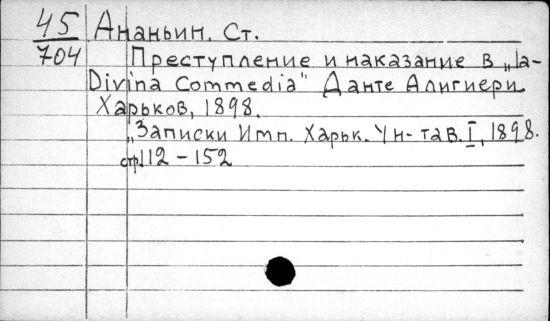 45 Ананьин, Ст.
704 Преступление и наказание в „la-
Divina Commedia" Данте Алигиери
Харьков, 1898.
„Записки Имп. Харьк. Ун-та в. I, 1898.
стр. 112 - 152